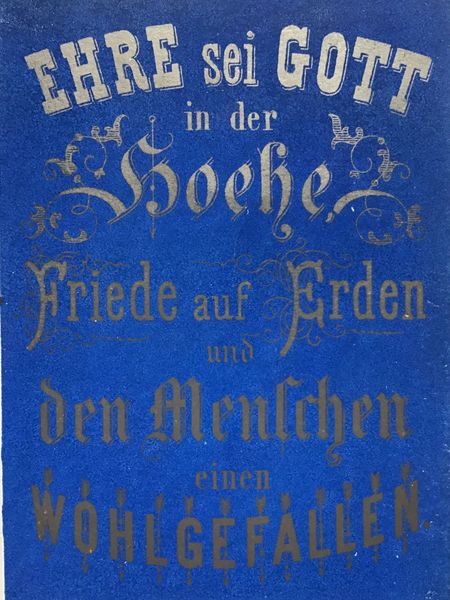 EHRE sei GOTT
in der
Hoehe,
Friede auf Erden
und
den Menſchen
einen
WOHLGEFALLEN.